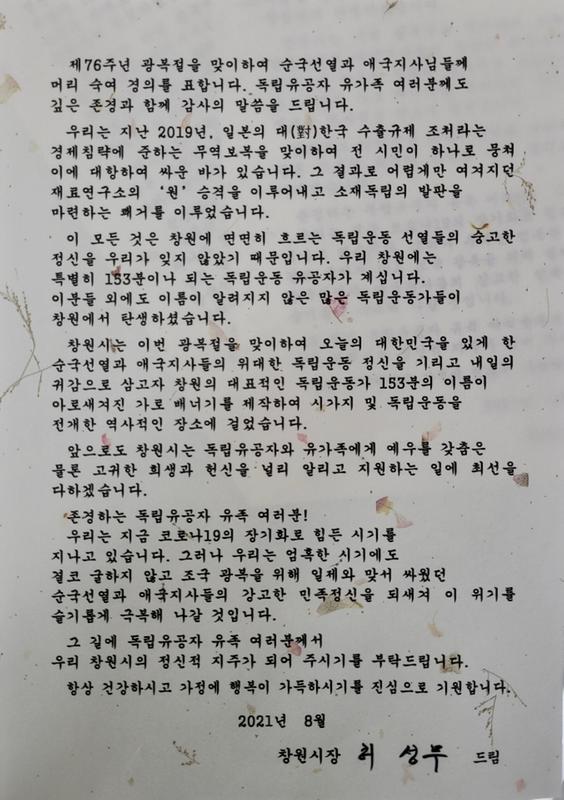 제76주년 광복절을 맞이하여 순국선열과 애국지사님들께
머리 숙여 경의를 표합니다. 독립유공자 유가족 여러분께도
깊은 존경과 함께 감사의 말씀을 드립니다.
우리는 지난 2019년, 일본의 대(對)한국 수출규제 조처라는
경제침략에 준하는 무역보복을 맞이하여 전 시민이 하나로 뭉쳐
이에 대항하여 싸운 바가 있습니다. 그 결과로 어렵게만 여겨지던
재료연구소의 ‘원’ 승격을 이루어내고 소재독립의 발판을
마련하는 쾌거를 이루었습니다.
이 모든 것은 창원에 면면히 흐르는 독립운동 선열들의 숭고한
정신을 우리가 잊지 않았기 때문입니다. 우리 창원에는
특별히 153분이나 되는 독립운동 유공자가 계십니다.
이분들 외에도 이름이 알려지지 않은 많은 독립운동가들이
창원에서 탄생하셨습니다.
창원시는 이번 광복절을 맞이하여 오늘의 대한민국을 있게 한
순국선열과 애국지사들의 위대한 독립운동 정신을 기리고 내일의
귀감으로 삼고자 창원의 대표적인 독립운동가 153분의 이름이
아로새겨진 가로 배너기를 제작하여 시가지 및 독립운동을
전개한 역사적인 장소에 걸었습니다.
앞으로도 창원시는 독립유공자와 유가족에게 예우를 갖춤은
물론 고귀한 희생과 헌신을 널리 알리고 지원하는 일에 최선을
다하겠습니다.
존경하는 독립유공자 유족 여러분!
우리는 지금 코로나19의 장기화로 힘든 시기를
지나고 있습니다. 그러나 우리는 엄혹한 시기에도
결코 굴하지 않고 조국 광복을 위해 일제와 맞서 싸웠던
순국선열과 애국지사들의 강고한 민족정신을 되새겨 이 위기를
슬기롭게 극복해 나갈 것입니다.
그 길에 독립유공자 유족 여러분께서
우리 창원시의 정신적 지주가 되어 주시기를 부탁드립니다.
항상 건강하시고 가정에 행복이 가득하시기를 진심으로 기원합니다.
2021년 8월
창원시장 허 성무 드림